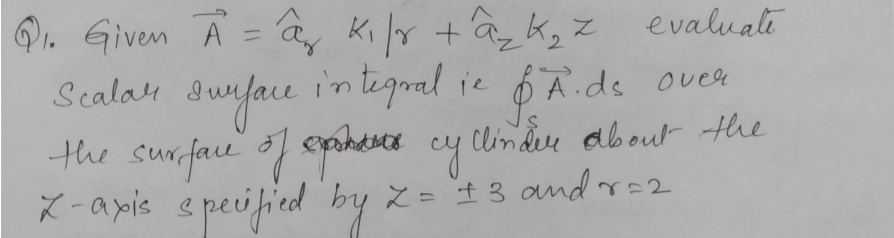 Q1. Given A⃗ = â_r K₁/r + â_z K₂ z evaluate
Scalar surface integral ie ∮_S A⃗.ds over
the surface of cyllinder about the
Z-axis specified by Z = ±3 and r=2